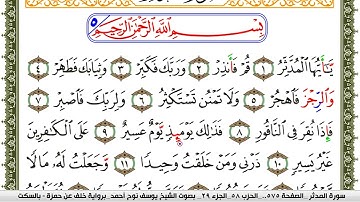 بِسْمِ اللَّهِ الرَّحْمَٰنِ الرَّحِيمِ
يَٰٓأَيُّهَا الْمُدَّثِّرُ ١ قُمْ فَأَنذِرْ ٢ وَرَبَّكَ فَكَبِّرْ ٣ وَثِيَابَكَ فَطَهِّرْ ٤
وَالرِّجْزَ فَاهْجُرْ ٥ وَلَا تَمْنُن تَسْتَكْثِرُ ٦ وَلِرَبِّكَ فَاصْبِرْ ٧
فَإِذَا نُقِرَ فِي النَّاقُورِ ٨ فَذَٰلِكَ يَوْمَئِذٍ يَوْمٌ عَسِيرٌ ٩ عَلَى الْكَٰفِرِينَ
غَيْرُ يَسِيرٍ ١٠ ذَرْنِي وَمَنْ خَلَقْتُ وَحِيدًا ١١ وَجَعَلْتُ لَهُ مَالًا
سورة المدثر - الصفحة ٥٧٥ - الحزب ٥٨ - الجزء ٢٩ - بصوت الشيخ يوسف نوح أحمد - برواية خلف عن حمزة - بالسكت